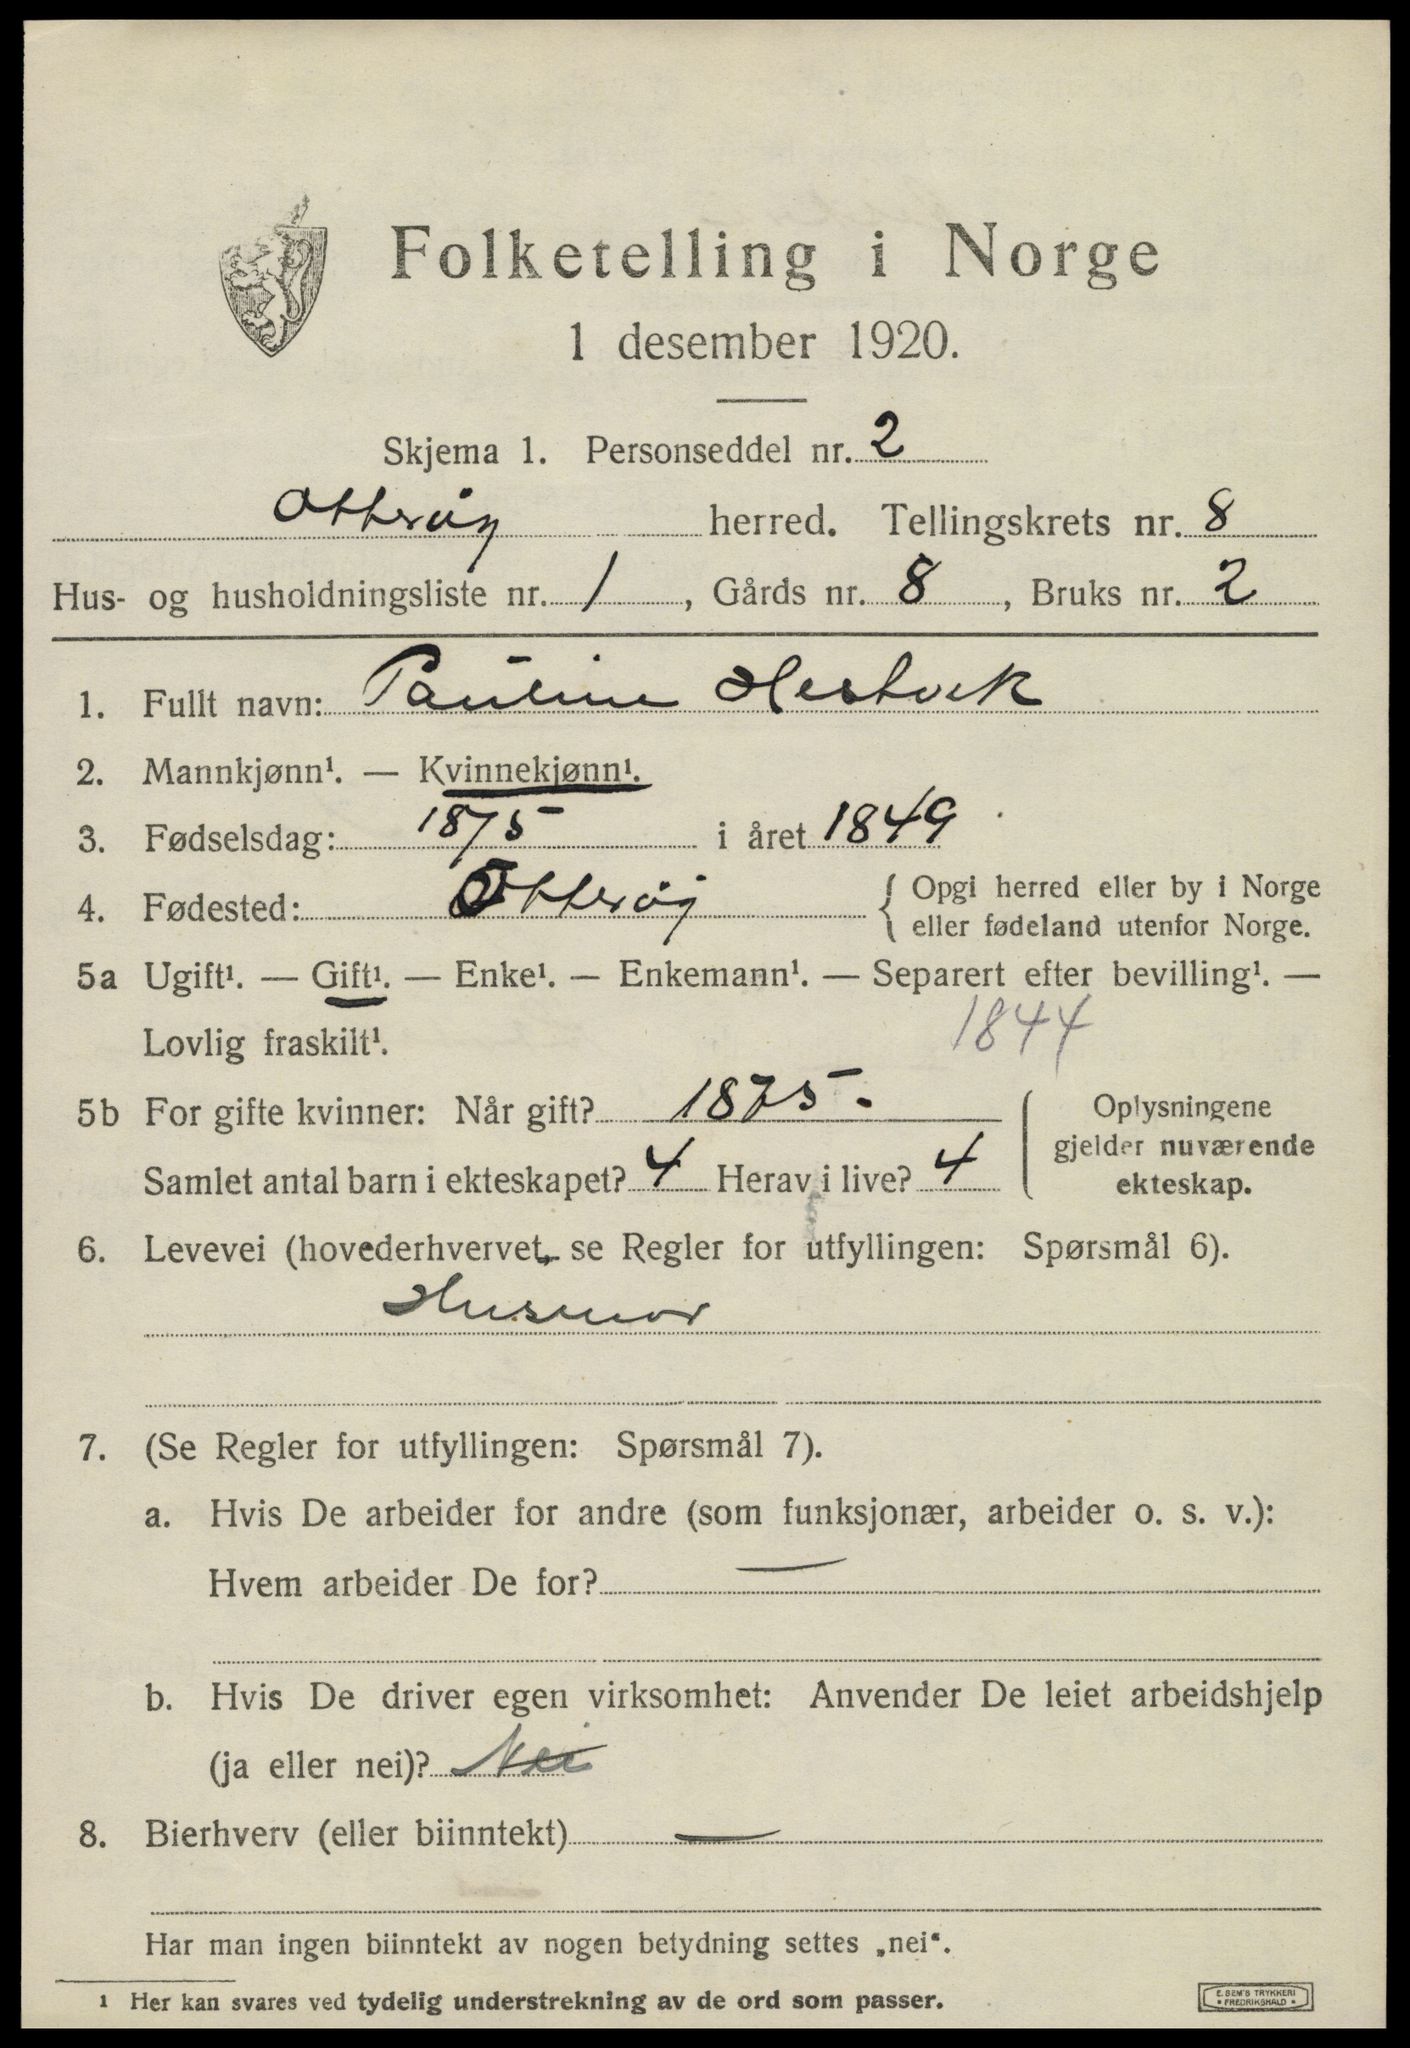 Folketelling i Norge
1 desember 1920.
Skjema 1. Personseddel nr. 2
Otterøy herred. Tellingskrets nr. 8
Hus- og husholdningsliste nr. 1, Gårds nr. 8, Bruks nr. 2
1. Fullt navn: Pauline Hestvik
2. Mannkjønn¹. — Kvinnekjønn¹.
3. Fødselsdag: 18/5 i året 1849
4. Fødested: Otterøy { Opgi herred eller by i Norge
eller fødeland utenfor Norge.
5a Ugift¹. — Gift¹. — Enke¹. — Enkemann¹. — Separert efter bevilling¹. —
Lovlig fraskilt¹. 1844
5b For gifte kvinner: Når gift? 1875.
Samlet antal barn i ekteskapet? 4 Herav i live? 4
Oplysningene
gjelder nuværende
ekteskap.
6. Levevei (hovederhvervet, se Regler for utfyllingen: Spørsmål 6).
Husmor
7. (Se Regler for utfyllingen: Spørsmål 7).
a. Hvis De arbeider for andre (som funksjonær, arbeider o. s. v.):
Hvem arbeider De for? —
b. Hvis De driver egen virksomhet: Anvender De leiet arbeidshjelp
(ja eller nei)? Nei
8. Bierhverv (eller biinntekt) —
Har man ingen biinntekt av nogen betydning settes „nei“.
¹ Her kan svares ved tydelig understrekning av de ord som passer.
E. SEM'S TRYKKERI
• FREDRIKSHALD •